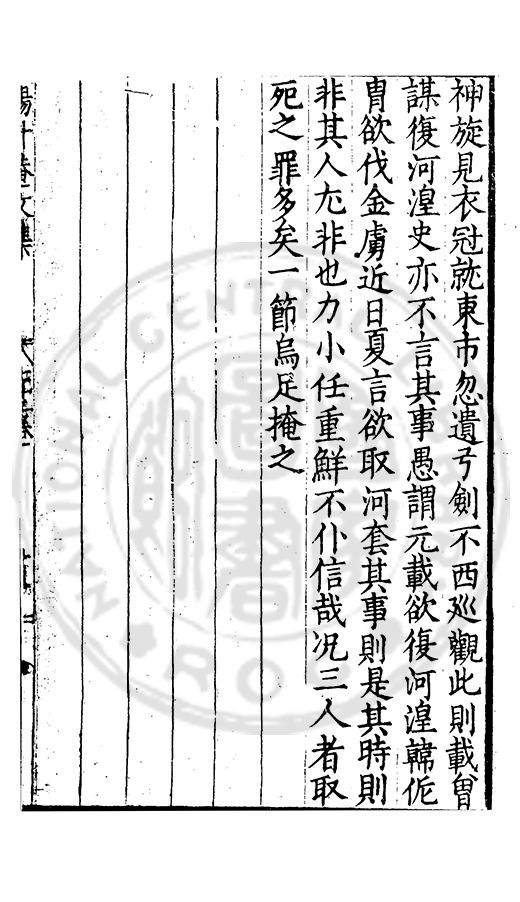 神旋見衣冠就東市忽遺弓劍不西巡觀此則載曾
謀復河湟史亦不言其事愚謂元載欲復河湟韓侂
胄欲伐金虜近日夏言欲取河套其事則是其時則
非其人尤非也力小任重鮮不仆信哉况三人者取
死之罪多矣一節烏足掩之